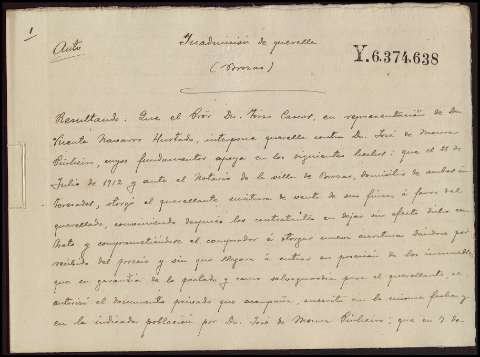 1
Auto
Inadmisión de querella
(Porozas)
Y.6.374.638
Resultando: Que el Pror Dn. Torres Cascos, en representación de Dn
Vicente Navarro Hurtado, interpone querella contra Dn. José de Moura
Pinheiro, cuyos fundamentos apoya en los siguientes hechos: que el 22 de
Julio de 1912 y ante el Notario de la villa de domicilio de ambos in-
teresados, otorgó el querellante, escritura de venta de sus fincas á favor del
querellado, conviniendo después los contratantes en dejar sin efecto dicho con-
trato y comprometiéndose el comprador á otorgar nueva escritura dándose por
reintado del precio y sin que llegara á entrar en posesión de los inmuebles,
que en garantía de lo pactado y como salvaguardia para el querellante, se
autorizó el documento privado que acompaña, suscrito en la misma fecha y
en la indicada población por Dn. José de Moura Pinheiro; que en 7 de